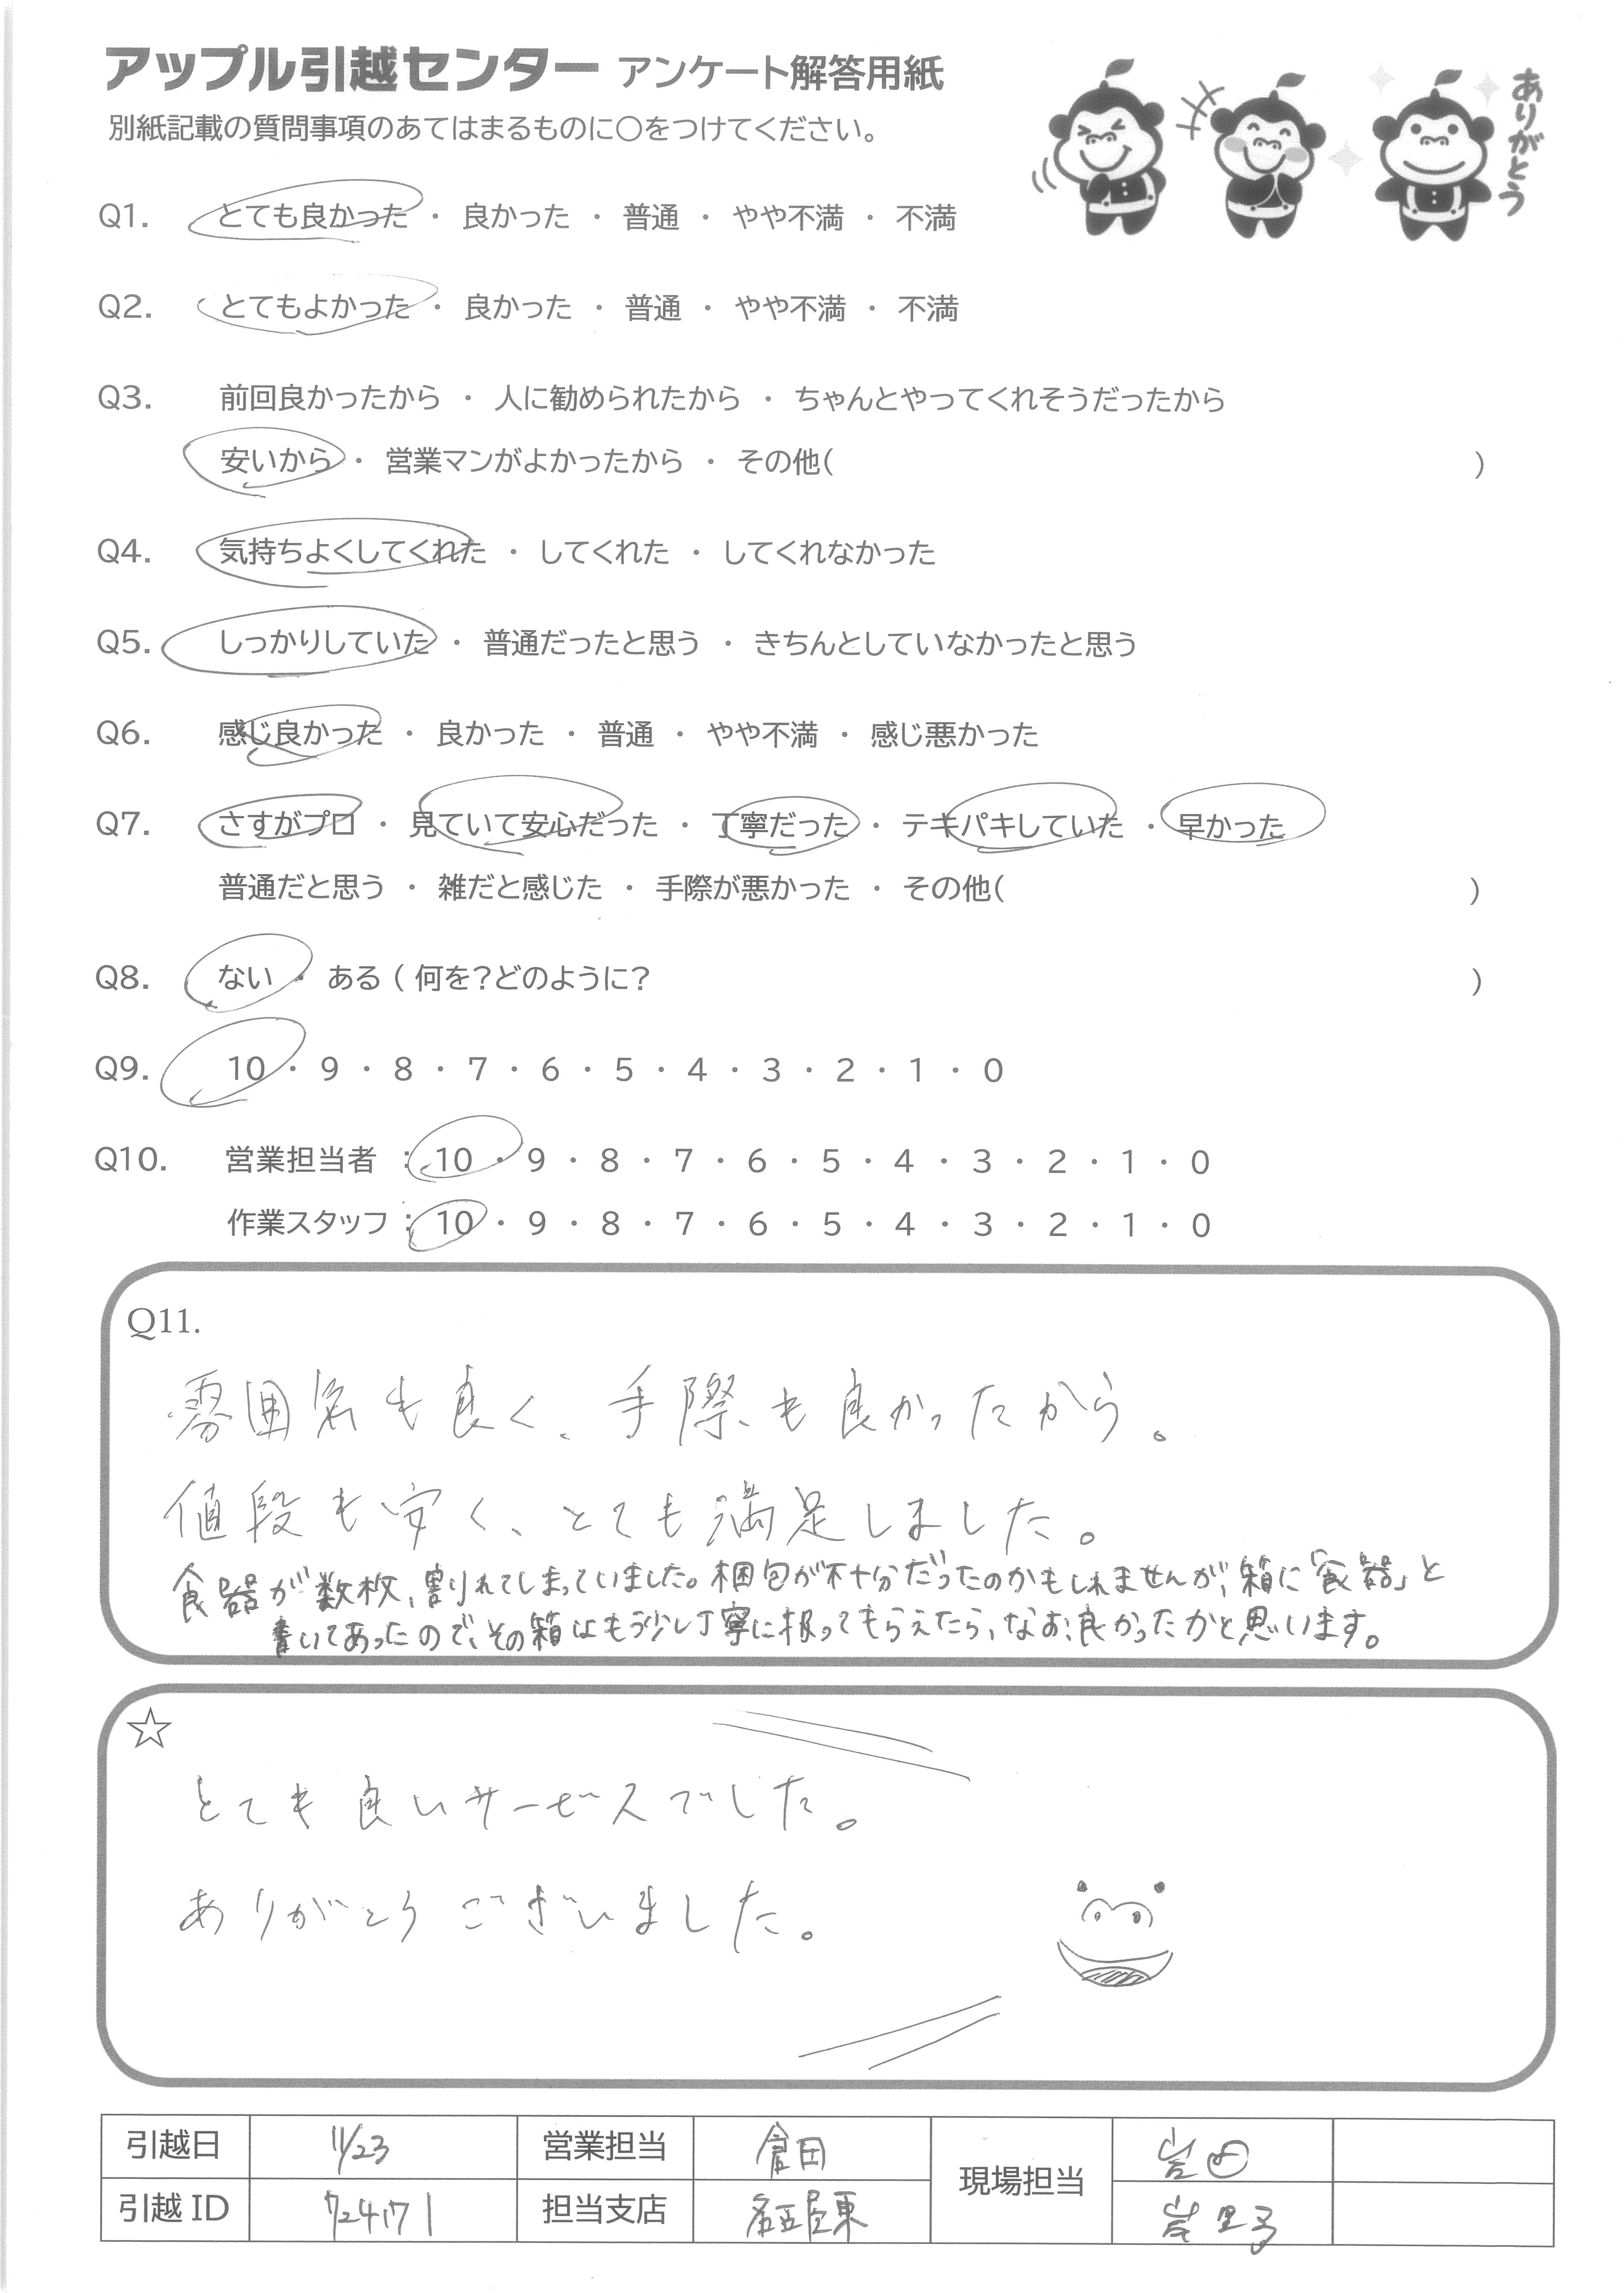 アップル引越センター アンケート解答用紙
別紙記載の質問事項のあてはまるものに○をつけてください。
ありがとう
Q1. とても良かった ・ 良かった ・ 普通 ・ やや不満 ・ 不満
Q2. とてもよかった ・ 良かった ・ 普通 ・ やや不満 ・ 不満
Q3. 前回良かったから ・ 人に勧められたから ・ ちゃんとやってくれそうだったから
安いから ・ 営業マンがよかったから ・ その他( )
Q4. 気持ちよくしてくれた ・ してくれた ・ してくれなかった
Q5. しっかりしていた ・ 普通だったと思う ・ きちんとしていなかったと思う
Q6. 感じ良かった ・ 良かった ・ 普通 ・ やや不満 ・ 感じ悪かった
Q7. さすがプロ ・ 見ていて安心だった ・ 丁寧だった ・ テキパキしていた ・ 早かった
普通だと思う ・ 雑だと感じた ・ 手際が悪かった ・ その他( )
Q8. ない ・ ある ( 何を?どのように? )
Q9. 10 ・ 9 ・ 8 ・ 7 ・ 6 ・ 5 ・ 4 ・ 3 ・ 2 ・ 1 ・ 0
Q10. 営業担当者 : 10 ・ 9 ・ 8 ・ 7 ・ 6 ・ 5 ・ 4 ・ 3 ・ 2 ・ 1 ・ 0
作業スタッフ : 10 ・ 9 ・ 8 ・ 7 ・ 6 ・ 5 ・ 4 ・ 3 ・ 2 ・ 1 ・ 0
Q11.
雰囲気も良く、手際も良かったから。
値段も安く、とても満足しました。
食器が数枚、割れてしまっていました。梱包が不十分だったのかもしれませんが、箱に「食器」と
書いてあったので、その箱はもう少し丁寧に扱ってもらえたら、なお良かったかと思います。
☆
とても良いサービスでした。
ありがとうございました。
引越日 11/23 営業担当 倉田 現場担当 岩田
引越 ID 724171 担当支店 名古屋東